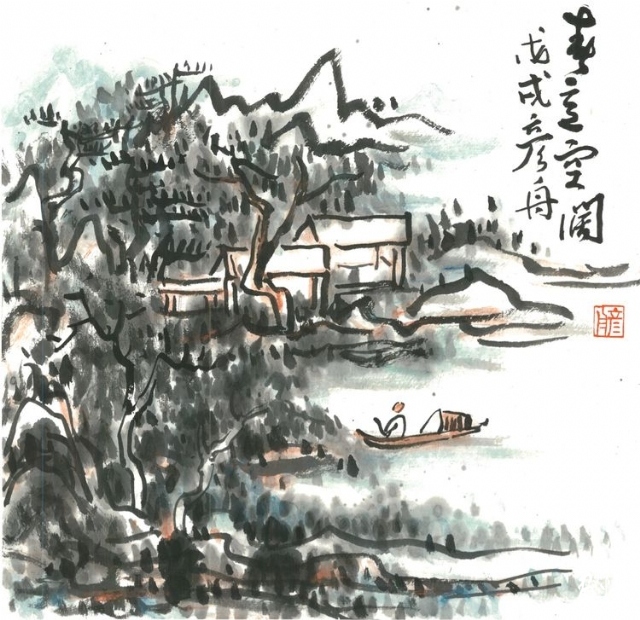 春意空阔
戊戌彦舟